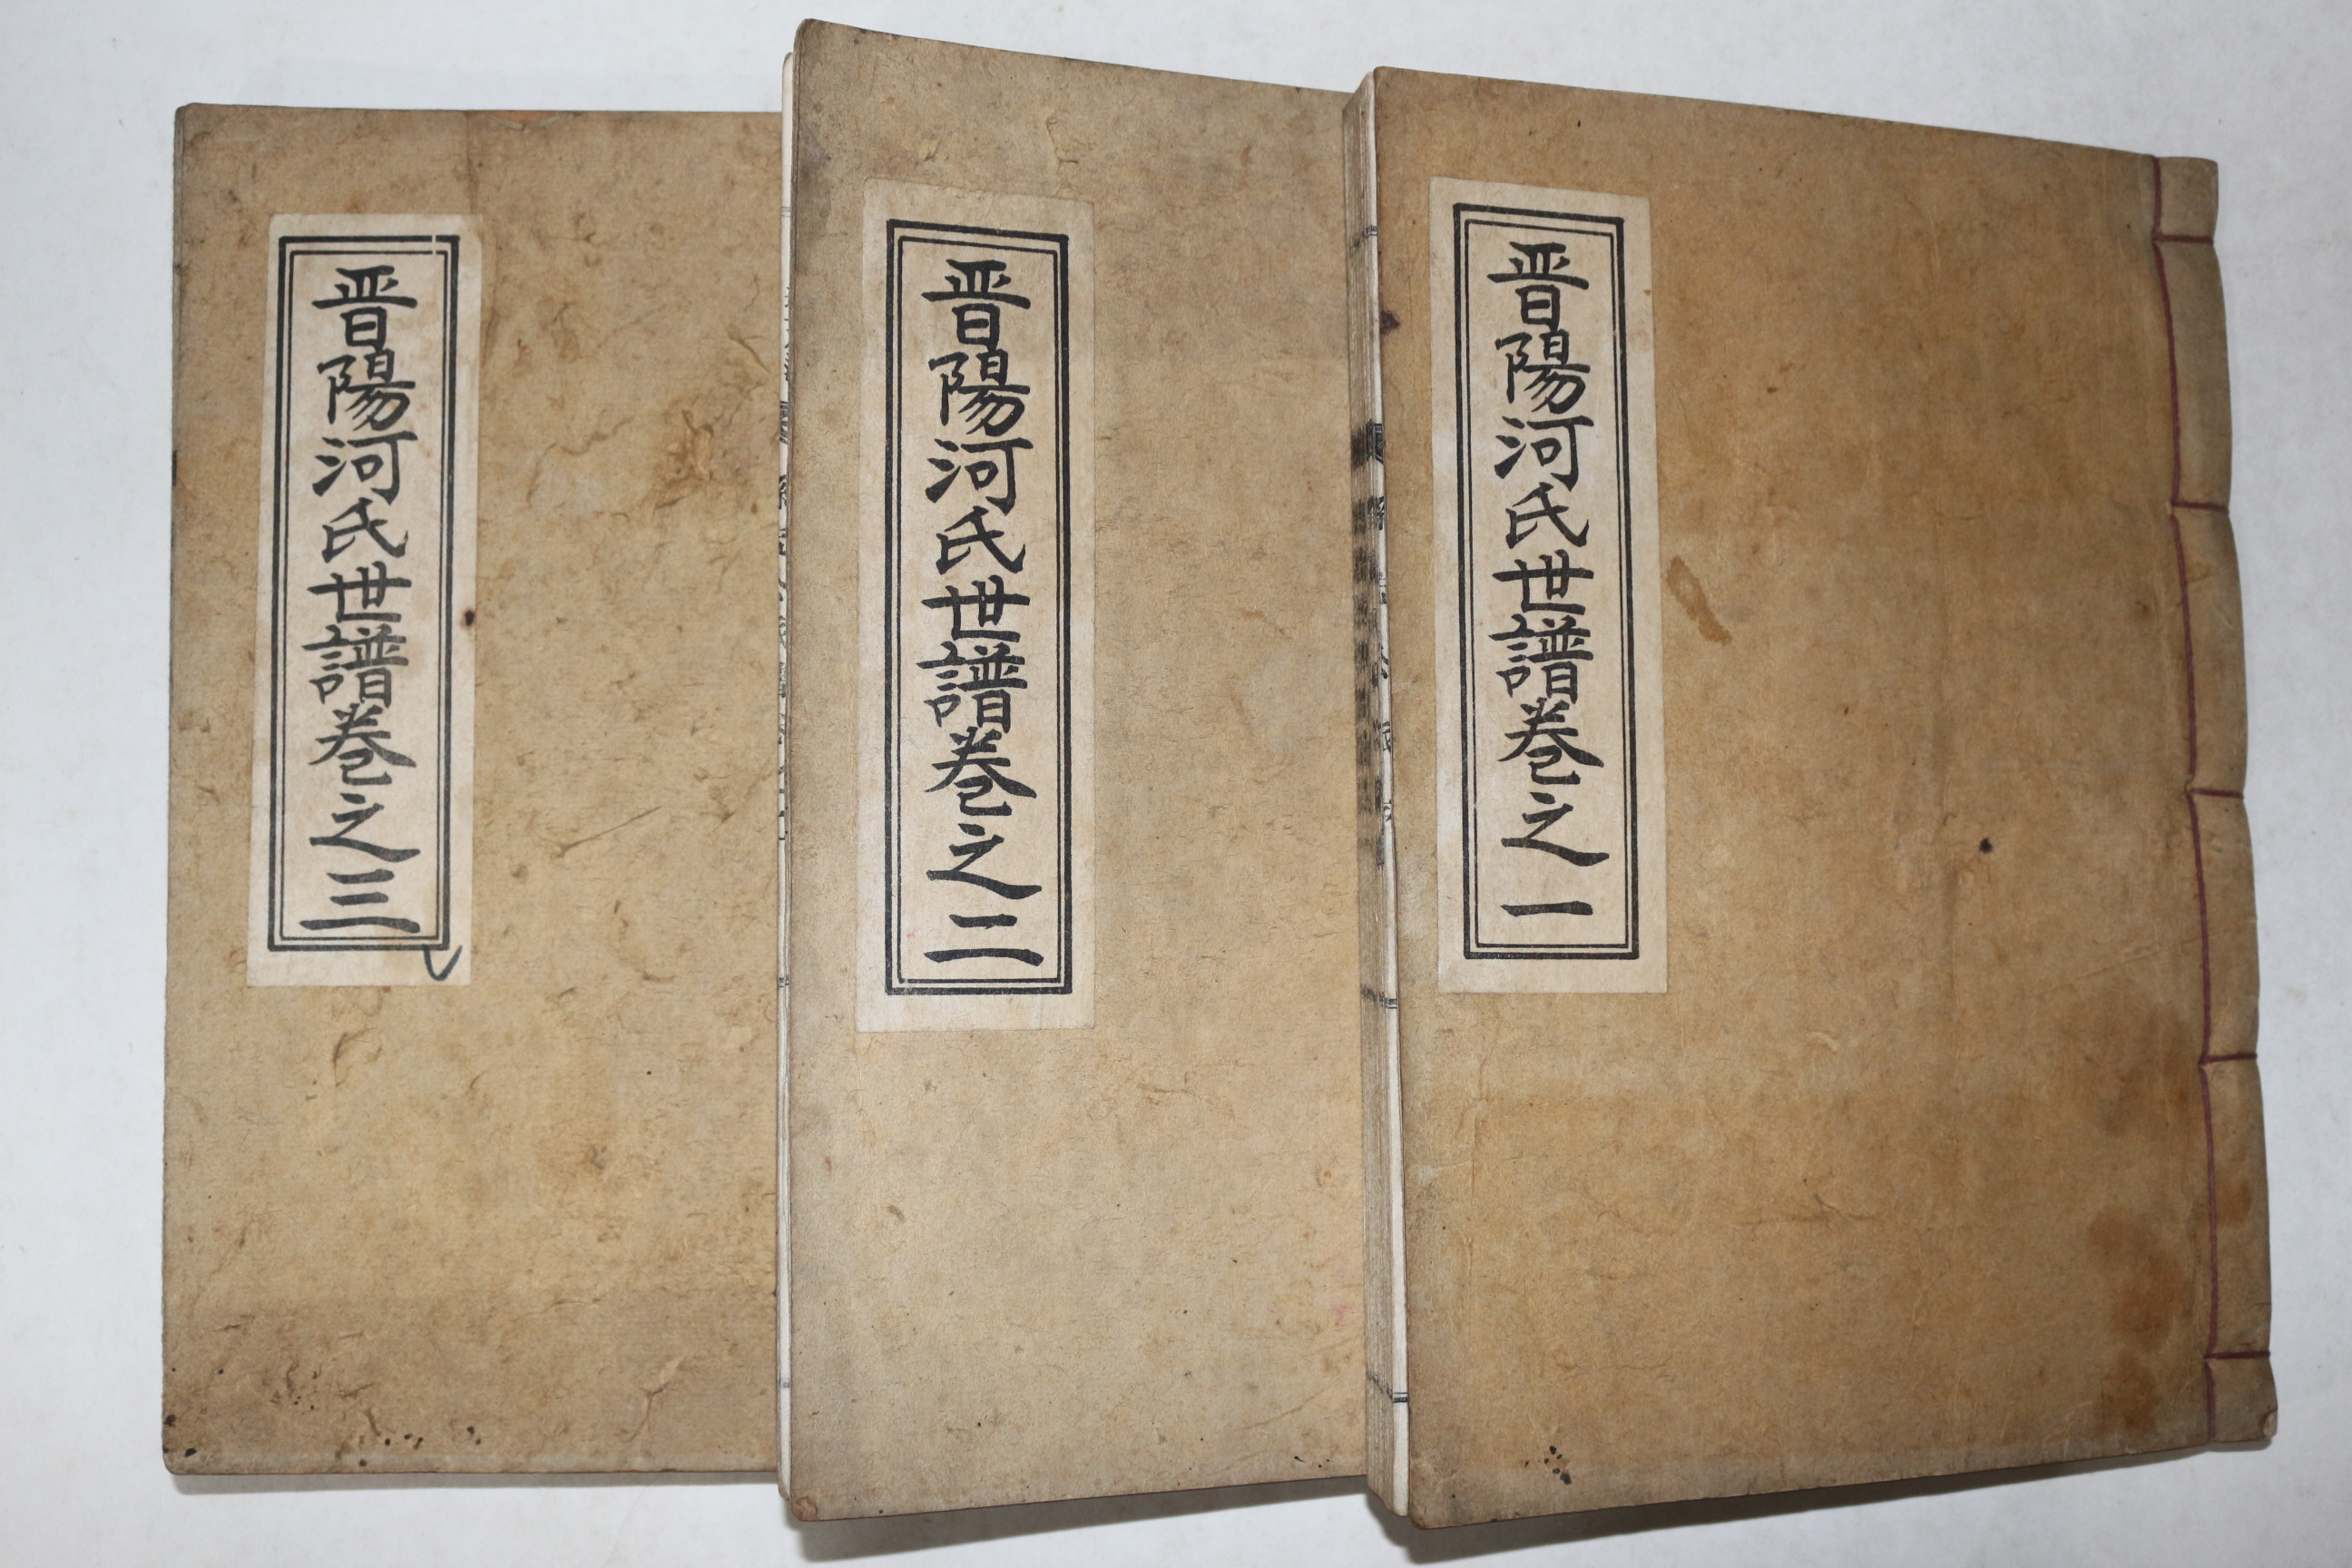 晋陽河氏世譜卷之一
晋陽河氏世譜卷之二
晋陽河氏世譜卷之三